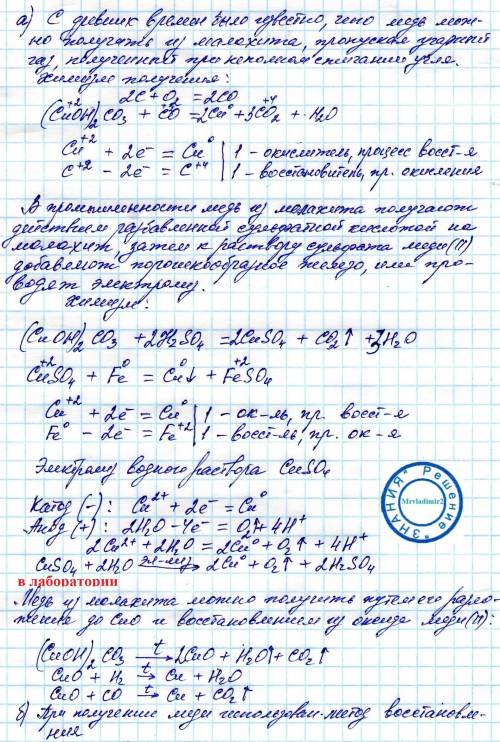 а) С древних времен было известно, что медь мож-
но получать из малахита, пропуская угарный
газ, полученный при неполном сжигании угля.
Химизм получения:
2C + O₂ = 2CO
(CuOH)₂CO₃ + 2CO = 2Cu⁰ + 3CO₂ + H₂O
Cu⁺² + 2e⁻ = Cu⁰ | 1 - окислитель, процесс восст-я
C⁺² - 2e⁻ = C⁺⁴ | 1 - восстановитель, пр. окисления
В промышленности медь из малахита получают
действием разбавленной сульфатной кислотой на
малахит, затем к раствору сульфата меди (II)
добавляют порошкообразное железо, или про-
водят электролиз.
Химизм:
(CuOH)₂CO₃ + 2H₂SO₄ = 2CuSO₄ + CO₂↑ + 3H₂O
Cu⁺²SO₄ + Fe⁰ = Cu⁰↓ + Fe⁺²SO₄
Cu⁺² + 2e⁻ = Cu⁰ | 1 - ок-ль, пр. восст-я
Fe⁰ - 2e⁻ = Fe⁺² | 1 - восст-ль, пр. ок-я
Электролиз водного раствора CuSO₄
Катод (-): Cu²⁺ + 2e⁻ = Cu⁰
Анод (+): 2H₂O - 4e⁻ = O₂↑ + 4H⁺
2Cu²⁺ + 2H₂O = 2Cu⁰ + O₂↑ + 4H⁺
2CuSO₄ + 2H₂O эл-лиз→ 2Cu⁰ + O₂↑ + 2H₂SO₄
"ЗНАНИЯ" Решение
Mrvladimir2
в лаборатории
Медь из малахита можно получить путем его разло-
жения до CuO и восстановлением из оксида меди (II):
(CuOH)₂CO₃ t→ 2CuO + H₂O↑ + CO₂↑
CuO + H₂ t→ Cu + H₂O
CuO + CO t→ Cu + CO₂↑
б) При получении меди использован метод восстановле-
ния